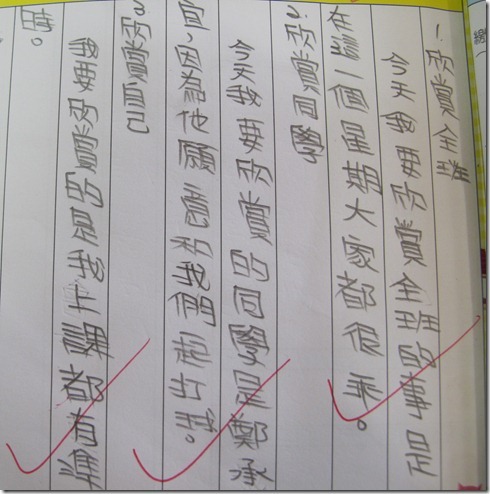 1. 欣賞全班
今天我要欣賞全班的事是
在這一個星期大家都很乖。
2. 欣賞同學
今天我要欣賞的同學是鄭承
宜，因為他願意和我們一起打球。
3. 欣賞自己
我要欣賞的是我上課都有準
時。